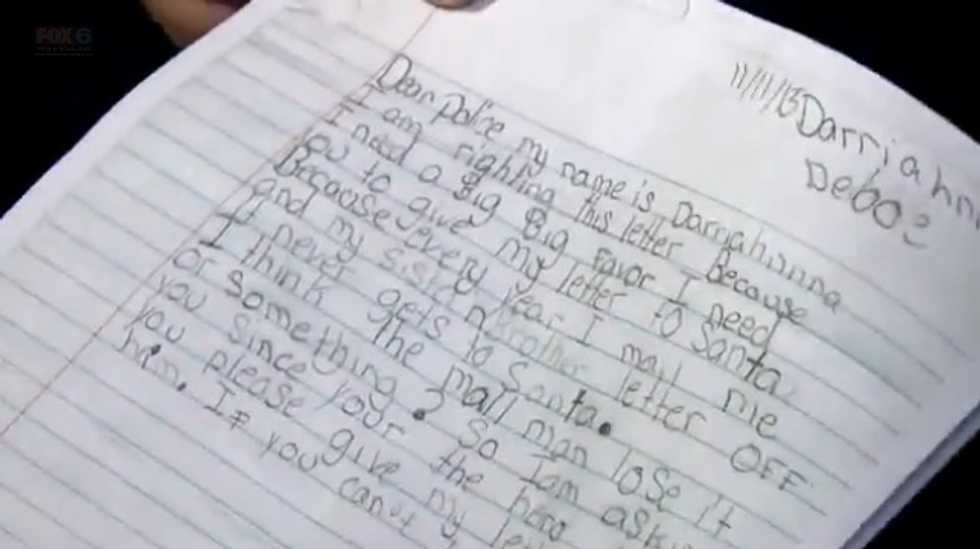 FOX6
11/11/13 Darriahnn
Deboe
Dear police my name is Darriahnna
I am righting this letter Because
I need a Big Big Favor I need
ou to give my letter to Santa
Because every year I mail me
and my sister n brother letter OFF
I never gets to Santa.
I think the mail man lose it
or something? So Iam ask
you since your the hero
you please give my le
him. IF you can't